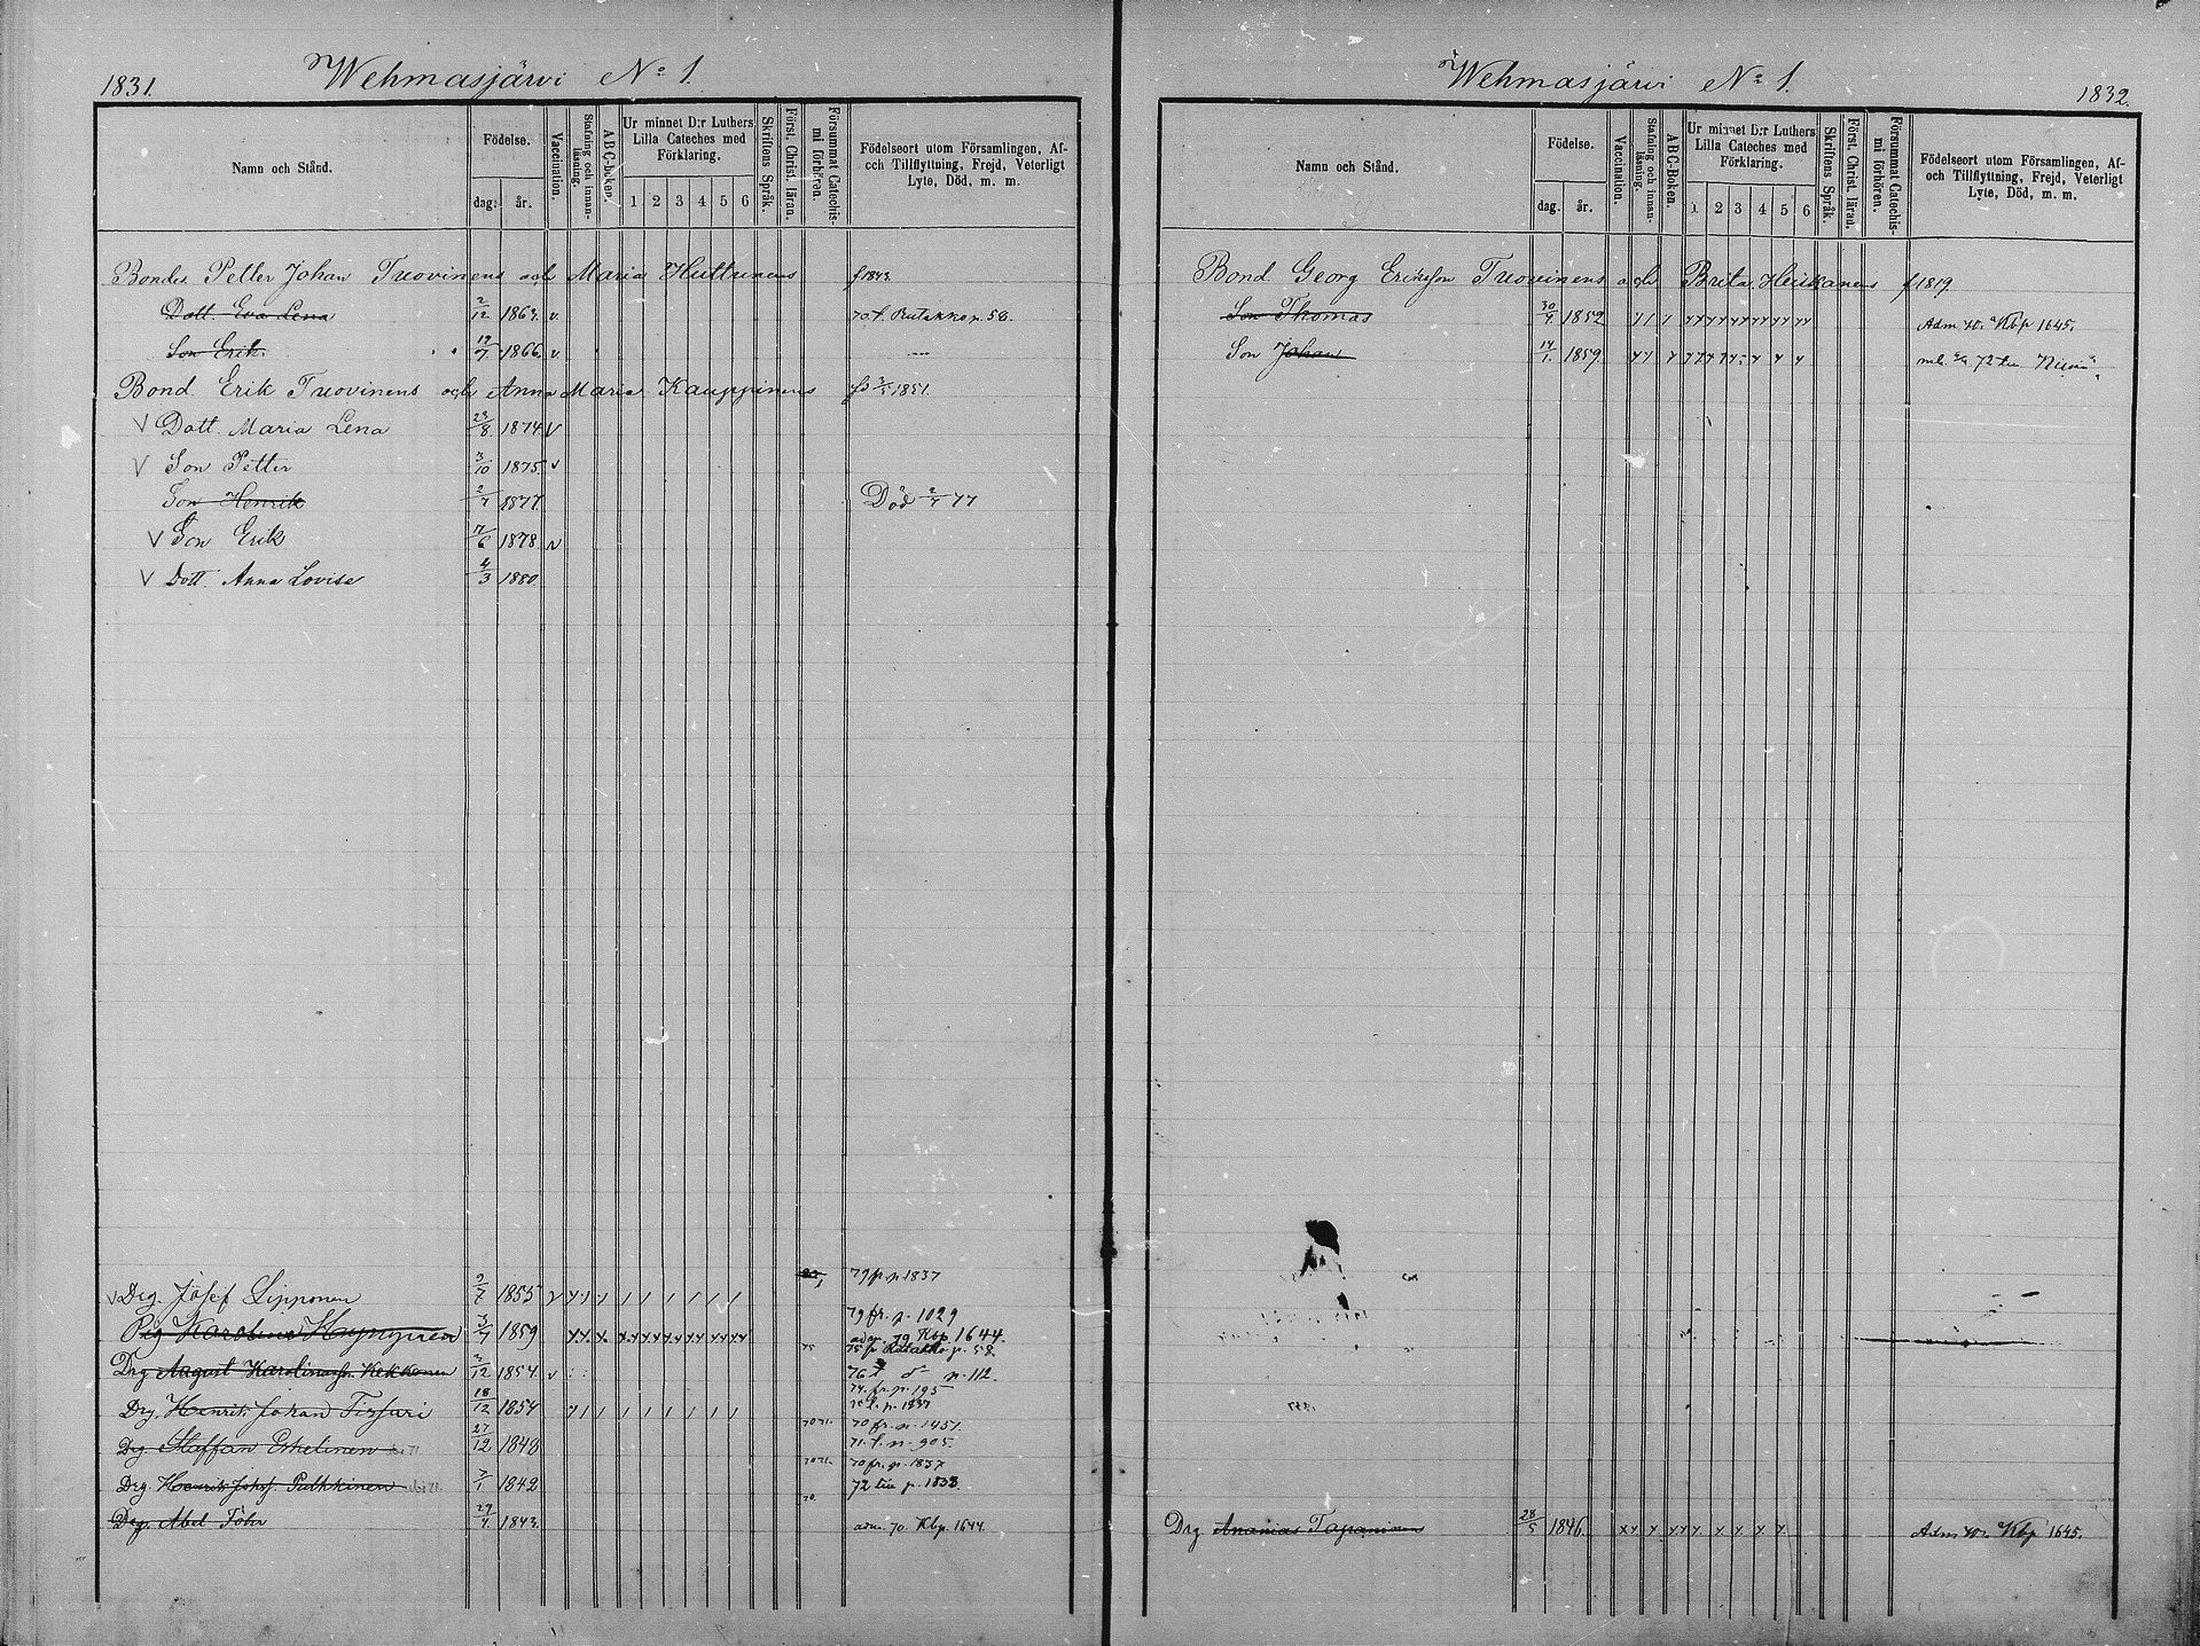 1831.
Wehmasjärvi No 1.
Namn och Stånd.
Födelse.
dag.
år.
Vaccination.
Stafning och innan-
läsning.
ABC-boken.
Ur minnet D:r Luthers
Lilla Cateches med
Förklaring.
1 2 3 4 5 6
Skriftens Språk.
Först. Christ. läran.
Försummat Catechis-
mi förhören.
Födelseort utom Församlingen, Af-
och Tillflyttning, Frejd, Veterligt
Lyte, Död, m. m.
Bondes Petter Johan Tuovinens och Maria Huttunens f 1843.
Dott. Eva Lena 2/12 1863. v. 70 t. Rutakko p. 58.
Son Erik 19/7 1866. v
Bond. Erik Tuovinens och Anna Maria Kauppinens 1851.
V Dott. Maria Lena 23/8 1874 V
V Son Petter 3/10 1875 v
Son Henrik 2/7 1877. Död 2/7 77
V Son Erik 7/6 1878. v
V Dott. Anna Lovisa 4/3 1880
V Drg. Josef Lipponen 9/7 1855 79 fr p 1837
Pig Karolina Huynynen 3/4 1859 79 fr. p. 1029
adm. 79 Kbp. 1644.
Drg August Karolinasson Kekkonen 3/12 1854. v 75 75 fr Rutakko p. 58.
76 t d:o p. 112.
Drg. Henrik Johan Tissari 18/12 1854 74. fr. p. 195
t. p. 1837
Drg Staffan Eskelinen 27/12 1848 70 71. 70 fr. p. 1451.
71. t. p. 905.
Drg. Henrik Johss. Pulkkinen 3/1 1842 70 71. 70 fr. p. 1837
72 till p. 1838.
Drg. Abel Töhr 29/4 1843. 70. adm. 70. Kbp. 1644.
Wehmasjärvi No 1.
1832.
Namn och Stånd.
Födelse.
dag.
år.
Vaccination.
Stafning och innan-
läsning.
ABC-Boken.
Ur minnet D:r Luthers
Lilla Cateches med
Förklaring.
1 2 3 4 5 6
Skriftens Språk.
Först. Christ. läran.
Försummat Catechis-
mi förhören.
Födelseort utom Församlingen, Af-
och Tillflyttning, Frejd, Veterligt
Lyte, Död, m. m.
Bond. Georg Eriksson Tuovinens och Brita Heiskanens f 1819.
Son Thomas 30/4. 1852 Adm 70. Kbp 1645.
Son Johan 14/1. 1859. 72 till
Drg Ananias Tapaninen 28/5 1846. Adm 70. Kbp 1645.